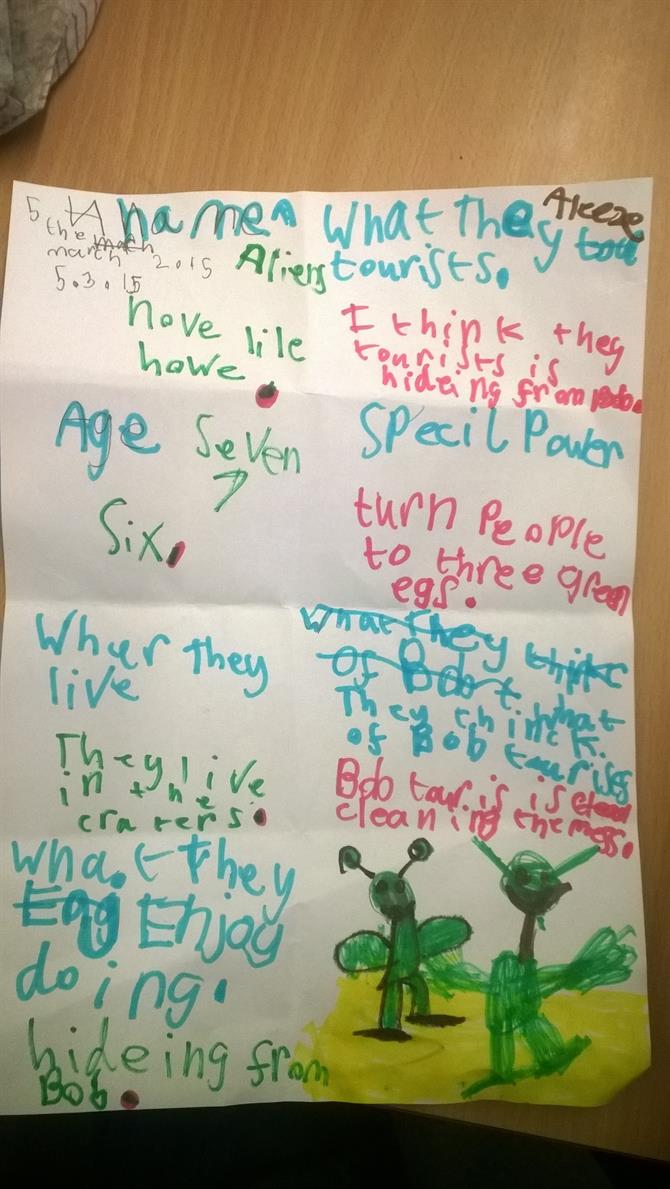 Aleeze
5
the
march 2.15
5.3.15
name
Aliens
nove lile
howe
What They
tourists.
I think they
tourists is
hideing from Bob.
Age
Seven
7
Six.
Specil Power
turn people
to three green
egs.
Whur they
live
They live
in the
craters.
What they think
of Bob
t. what
They thinck.
of Bob tourises
Bob tour is is
cleaning the mess.
What they
Enjoy
doing.
hideing from
Bob.